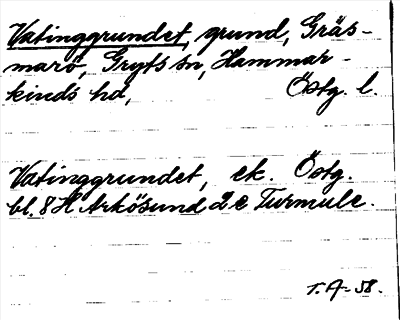 Vatinggrundet, grund, Gräs-
marö, Gryts sn, Hammar-
kinds hd, Östg. l.
Vatinggrundet, ek. Östg.
bl. 8 H Arkösund 2 e Turmulc.
T. A-58.